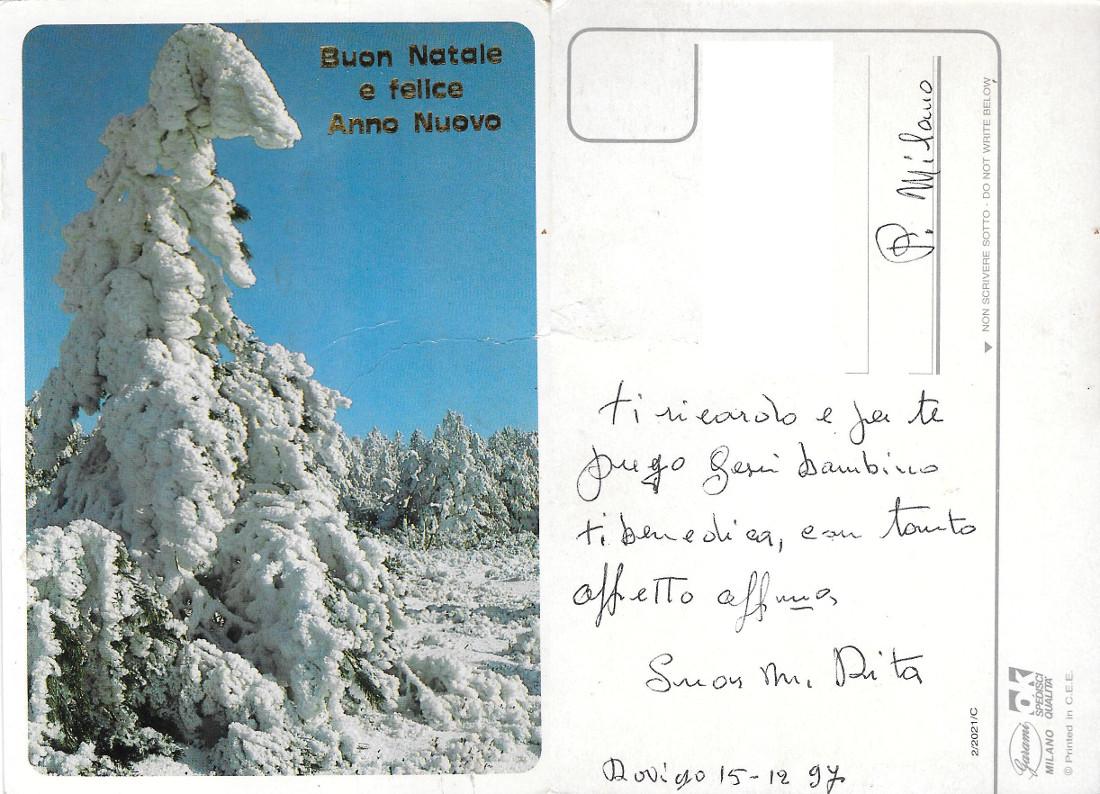 Buon Natale
e felice
Anno Nuovo
P. Milano
▼ NON SCRIVERE SOTTO - DO NOT WRITE BELOW
ti ricordo e per te
prego Gesù bambino
ti benedica, con tanto
affetto affma
Suor M. Rita
Rovigo 15-12 97
2/2021/C
Garami
MILANO
SPEDISCI
QUALITÀ
© Printed in C.E.E.